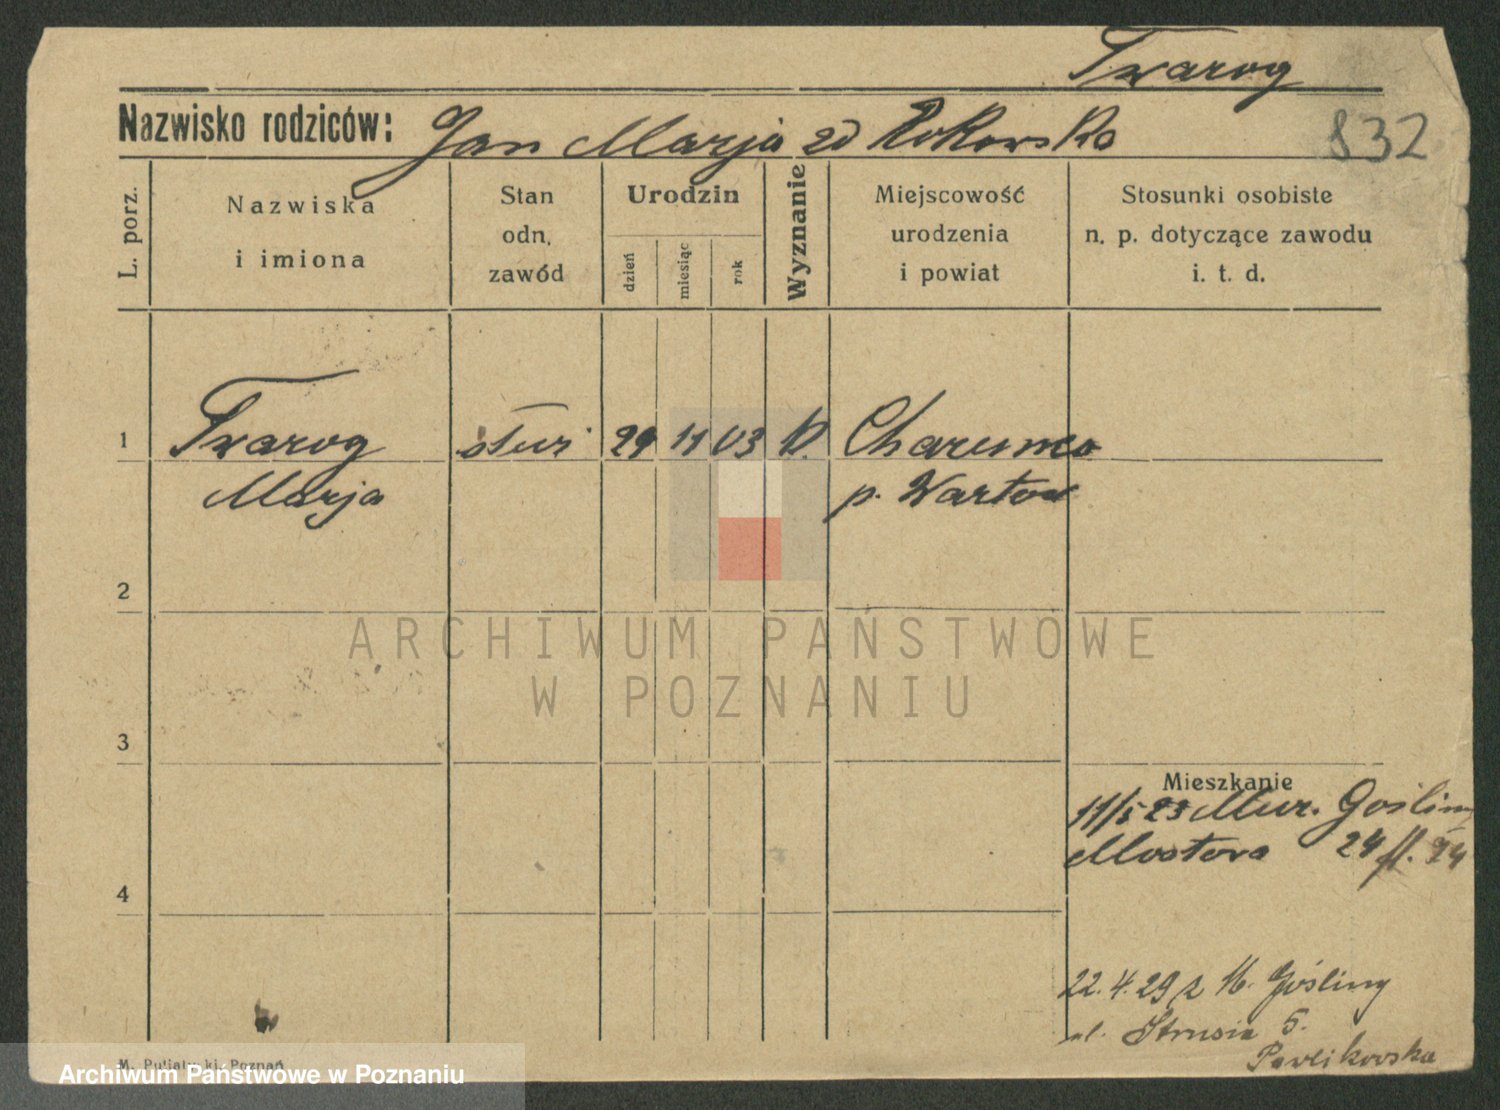 Twarog
Nazwisko rodziców: Jan Marja zd Rokowska
832
L. porz.
Nazwiska
i imiona
Stan
odn.
zawód
Urodzin
dzień
miesiąc
rok
Wyznanie
Miejscowość
urodzenia
i powiat
Stosunki osobiste
n. p. dotyczące zawodu
i. t. d.
1 Twarog służ. 29 11 03 k.
Marja p.
2
ARCHIWUM PAŃSTWOWE
W POZNANIU
3
Mieszkanie
11/5 23 Mur. Gośliny
Mostowa 24
4
22.4.29 z M. Gośliny
ul. Strusia 5.
Pawlikowska
Poznań
Archiwum Państwowe w Poznaniu